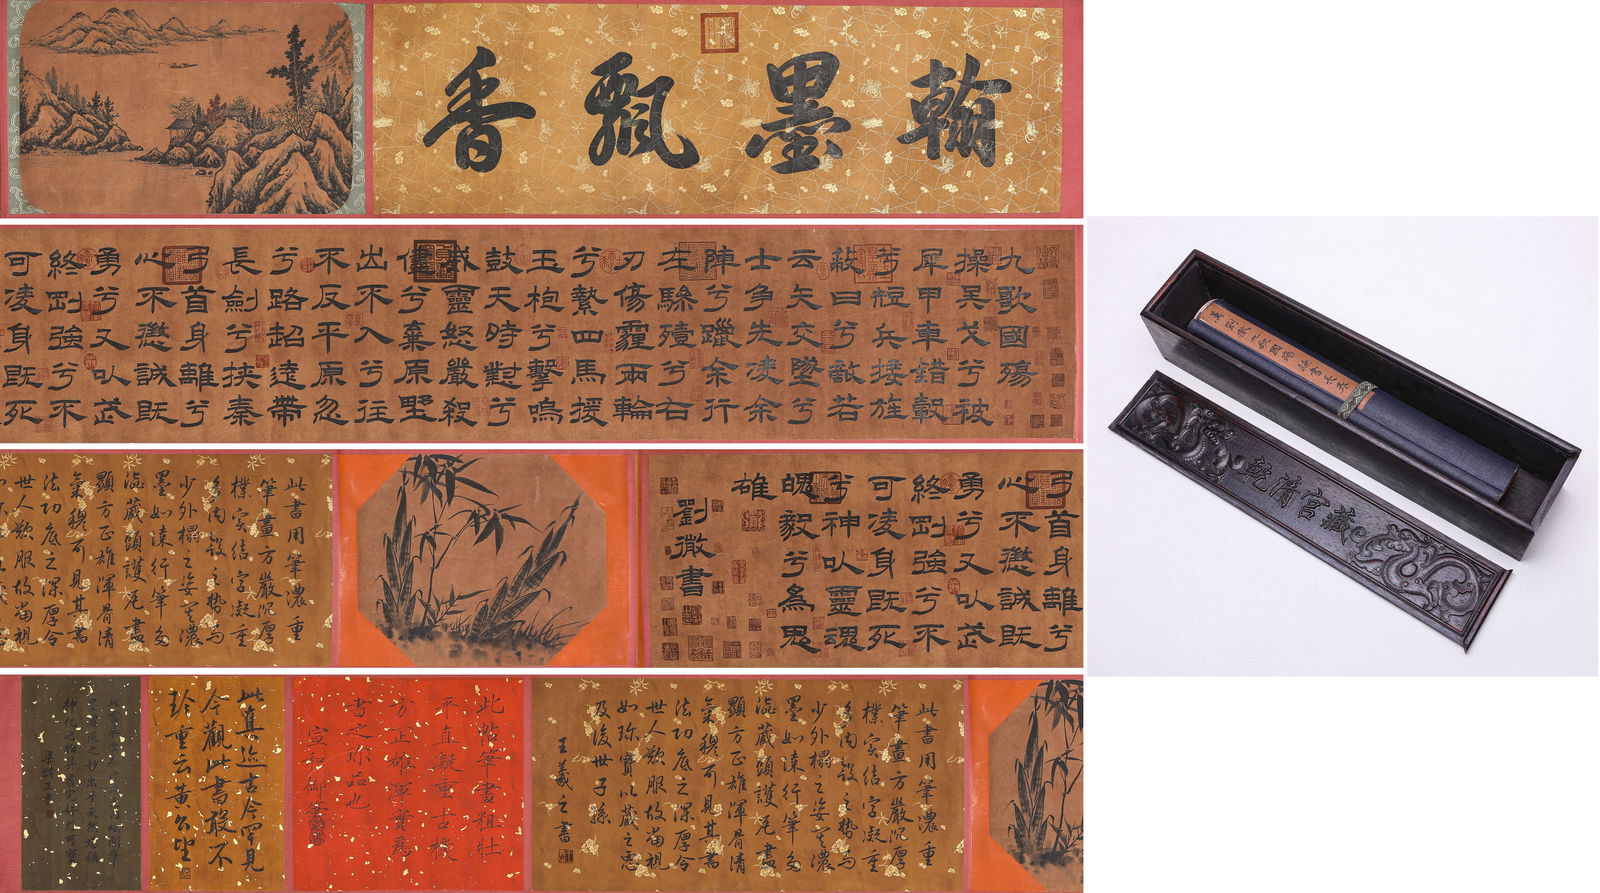 翰墨飄香
九歌國殤
操吴戈兮被
犀甲車錯轂
兮短兵接旌
蔽日兮敵若
云矢交墜兮
士争先凌余
陣兮躐余行
左驂殪兮右
刃傷霾兩輪
兮縶四馬援
玉枹兮擊鳴
鼓天時懟兮
威靈怒嚴殺
儘兮棄原埜
出不入兮往
不反平原忽
兮路超遠帶
長劍兮挾秦
弓首身離兮
心不懲誠既
勇兮又以武
終剛強兮不
可凌身既死
弓首身離兮
心不懲誠既
勇兮又以武
終剛強兮不
可凌身既死
兮神以靈魂
魄毅兮為鬼
雄
劉徹書
此書用筆濃重
筆畫方嚴沉厚
樸实结字凝重
多內之勢與
少外之姿濃
墨如漆行筆多
澁藏頭護尾書
顯方正雄渾骨清
氣穆可見其書
法功底之深厚令
世人欲服故當視
此書用筆濃重
筆畫方嚴沉厚
樸实结字凝重
多內之勢與
少外之姿濃
墨如漆行筆多
澁藏頭護尾書
顯方正雄渾骨清
氣穆可見其書
法功底之深厚令
世人欲服故當視
如珍寶以藏之
及後世子孫
王羲之書
此帖筆畫粗壯
平直凝重古樸
方正雄渾實爲
書之珍品也
宣和御筆
此真迹古今罕見
今觀此書敢不
珍重云黄公望
梁詩正書
漢劉徹九歌國殤隸書長卷
乾清宫藏